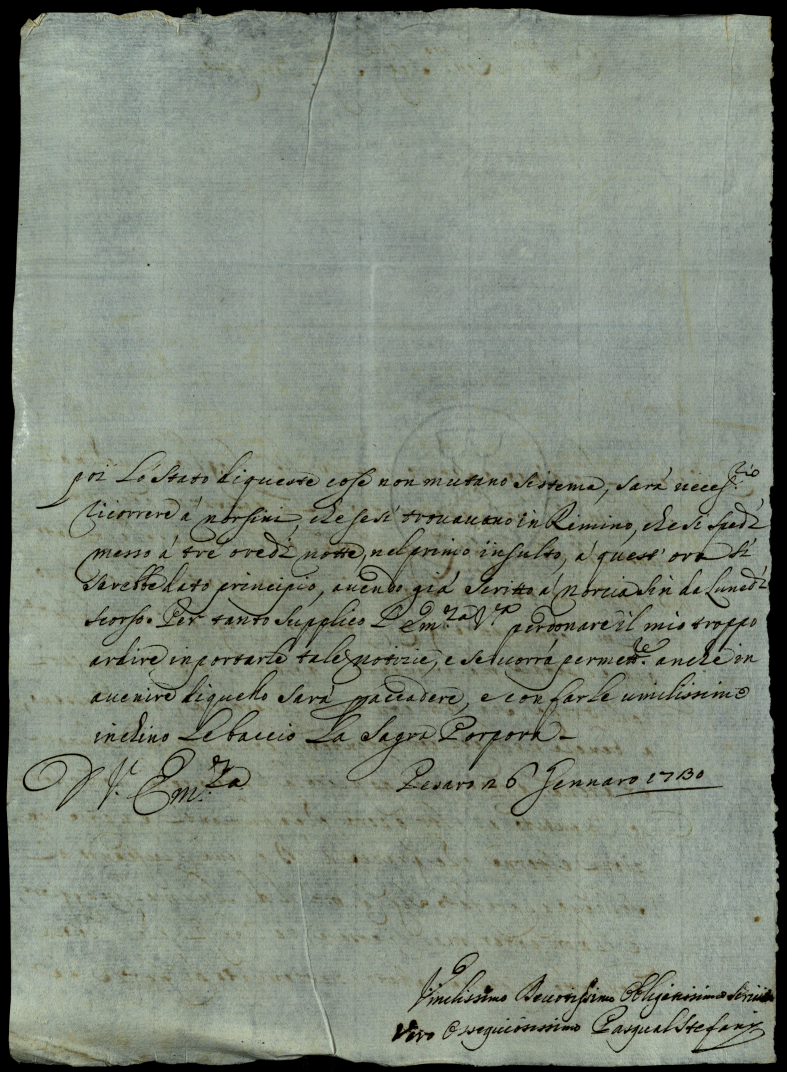 poi Lo Stato di queste cose non mutano sistema, sarà neces:rio
ricorrere à norsini, che se si trouauano in Rimino, che si spedì
messo à tre ore di notte, nel primo insulto, a quest' ora si
sarebbe dato principio, auendo già scritto a Norcia sin da Lunedì
scorso. Per tanto supplico L' Em:za V:ra perdonare il mio troppo
ardire in portarle tale notizie, e se uorrà permett:re anche in
auenire di quello sarà p accadere, e con farle umilissimo
inchino Le baccio La Sagra Porpora -
D V:ra Em:za Pesaro 26 Gennaro 1730
Vmilissimo Deuotissimo Obligatissimo Seruit
Vero Ossequiosissimo Pasqual Stefani